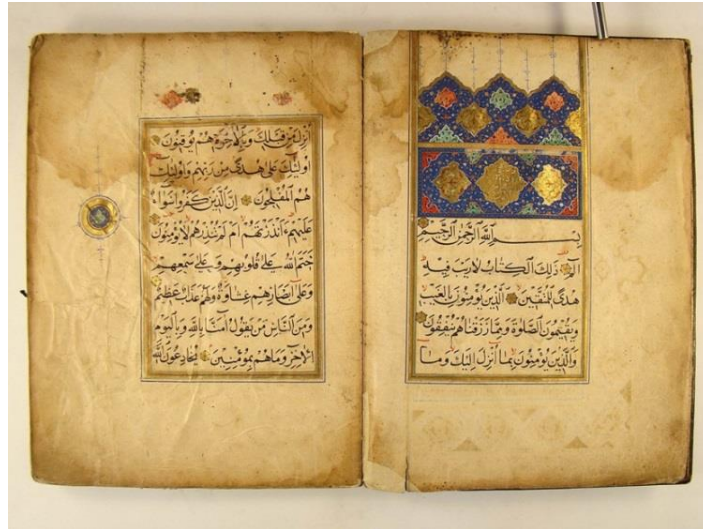 بسم الله الرحمن الرحيم
الم ذلك الكتاب لا ريب فيه
هدى للمتقين الذين يؤمنون بالغيب
ويقيمون الصلوة ومما رزقناهم ينفقون
والذين يؤمنون بما أنزل إليك وما
أنزل من قبلك وبالآخرة هم يوقنون
أولئك على هدى من ربهم وأولئك
هم المفلحون إن الذين كفروا سواء
عليهم ءأنذرتهم أم لم تنذرهم لا يؤمنون
ختم الله على قلوبهم وعلى سمعهم
وعلى أبصارهم غشاوة ولهم عذاب عظيم
ومن الناس من يقول آمنا بالله وباليوم
الآخر وما هم بمؤمنين يخادعون الله